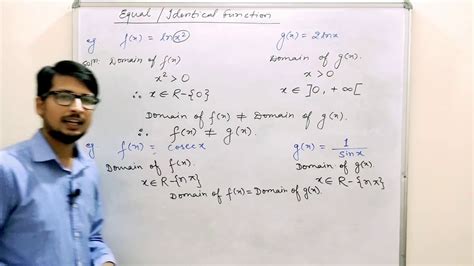 Equal / Identical Function
eg f(x) = ln x² g(x) = 2lnx
Solⁿ. Domain of f(x) Domain of g(x).
x² > 0 x > 0
∴ x ∈ R-{0} x ∈ ]0, +∞[
Domain of f(x) ≠ Domain of g(x).
∴ f(x) ≠ g(x).
eg. f(x) = cosec x g(x) = 1/sinx
Domain of f(x). Domain of g(x).
x ∈ R-{nπ} x ∈ R-{nπ}
Domain of f(x) = Domain of g(x).